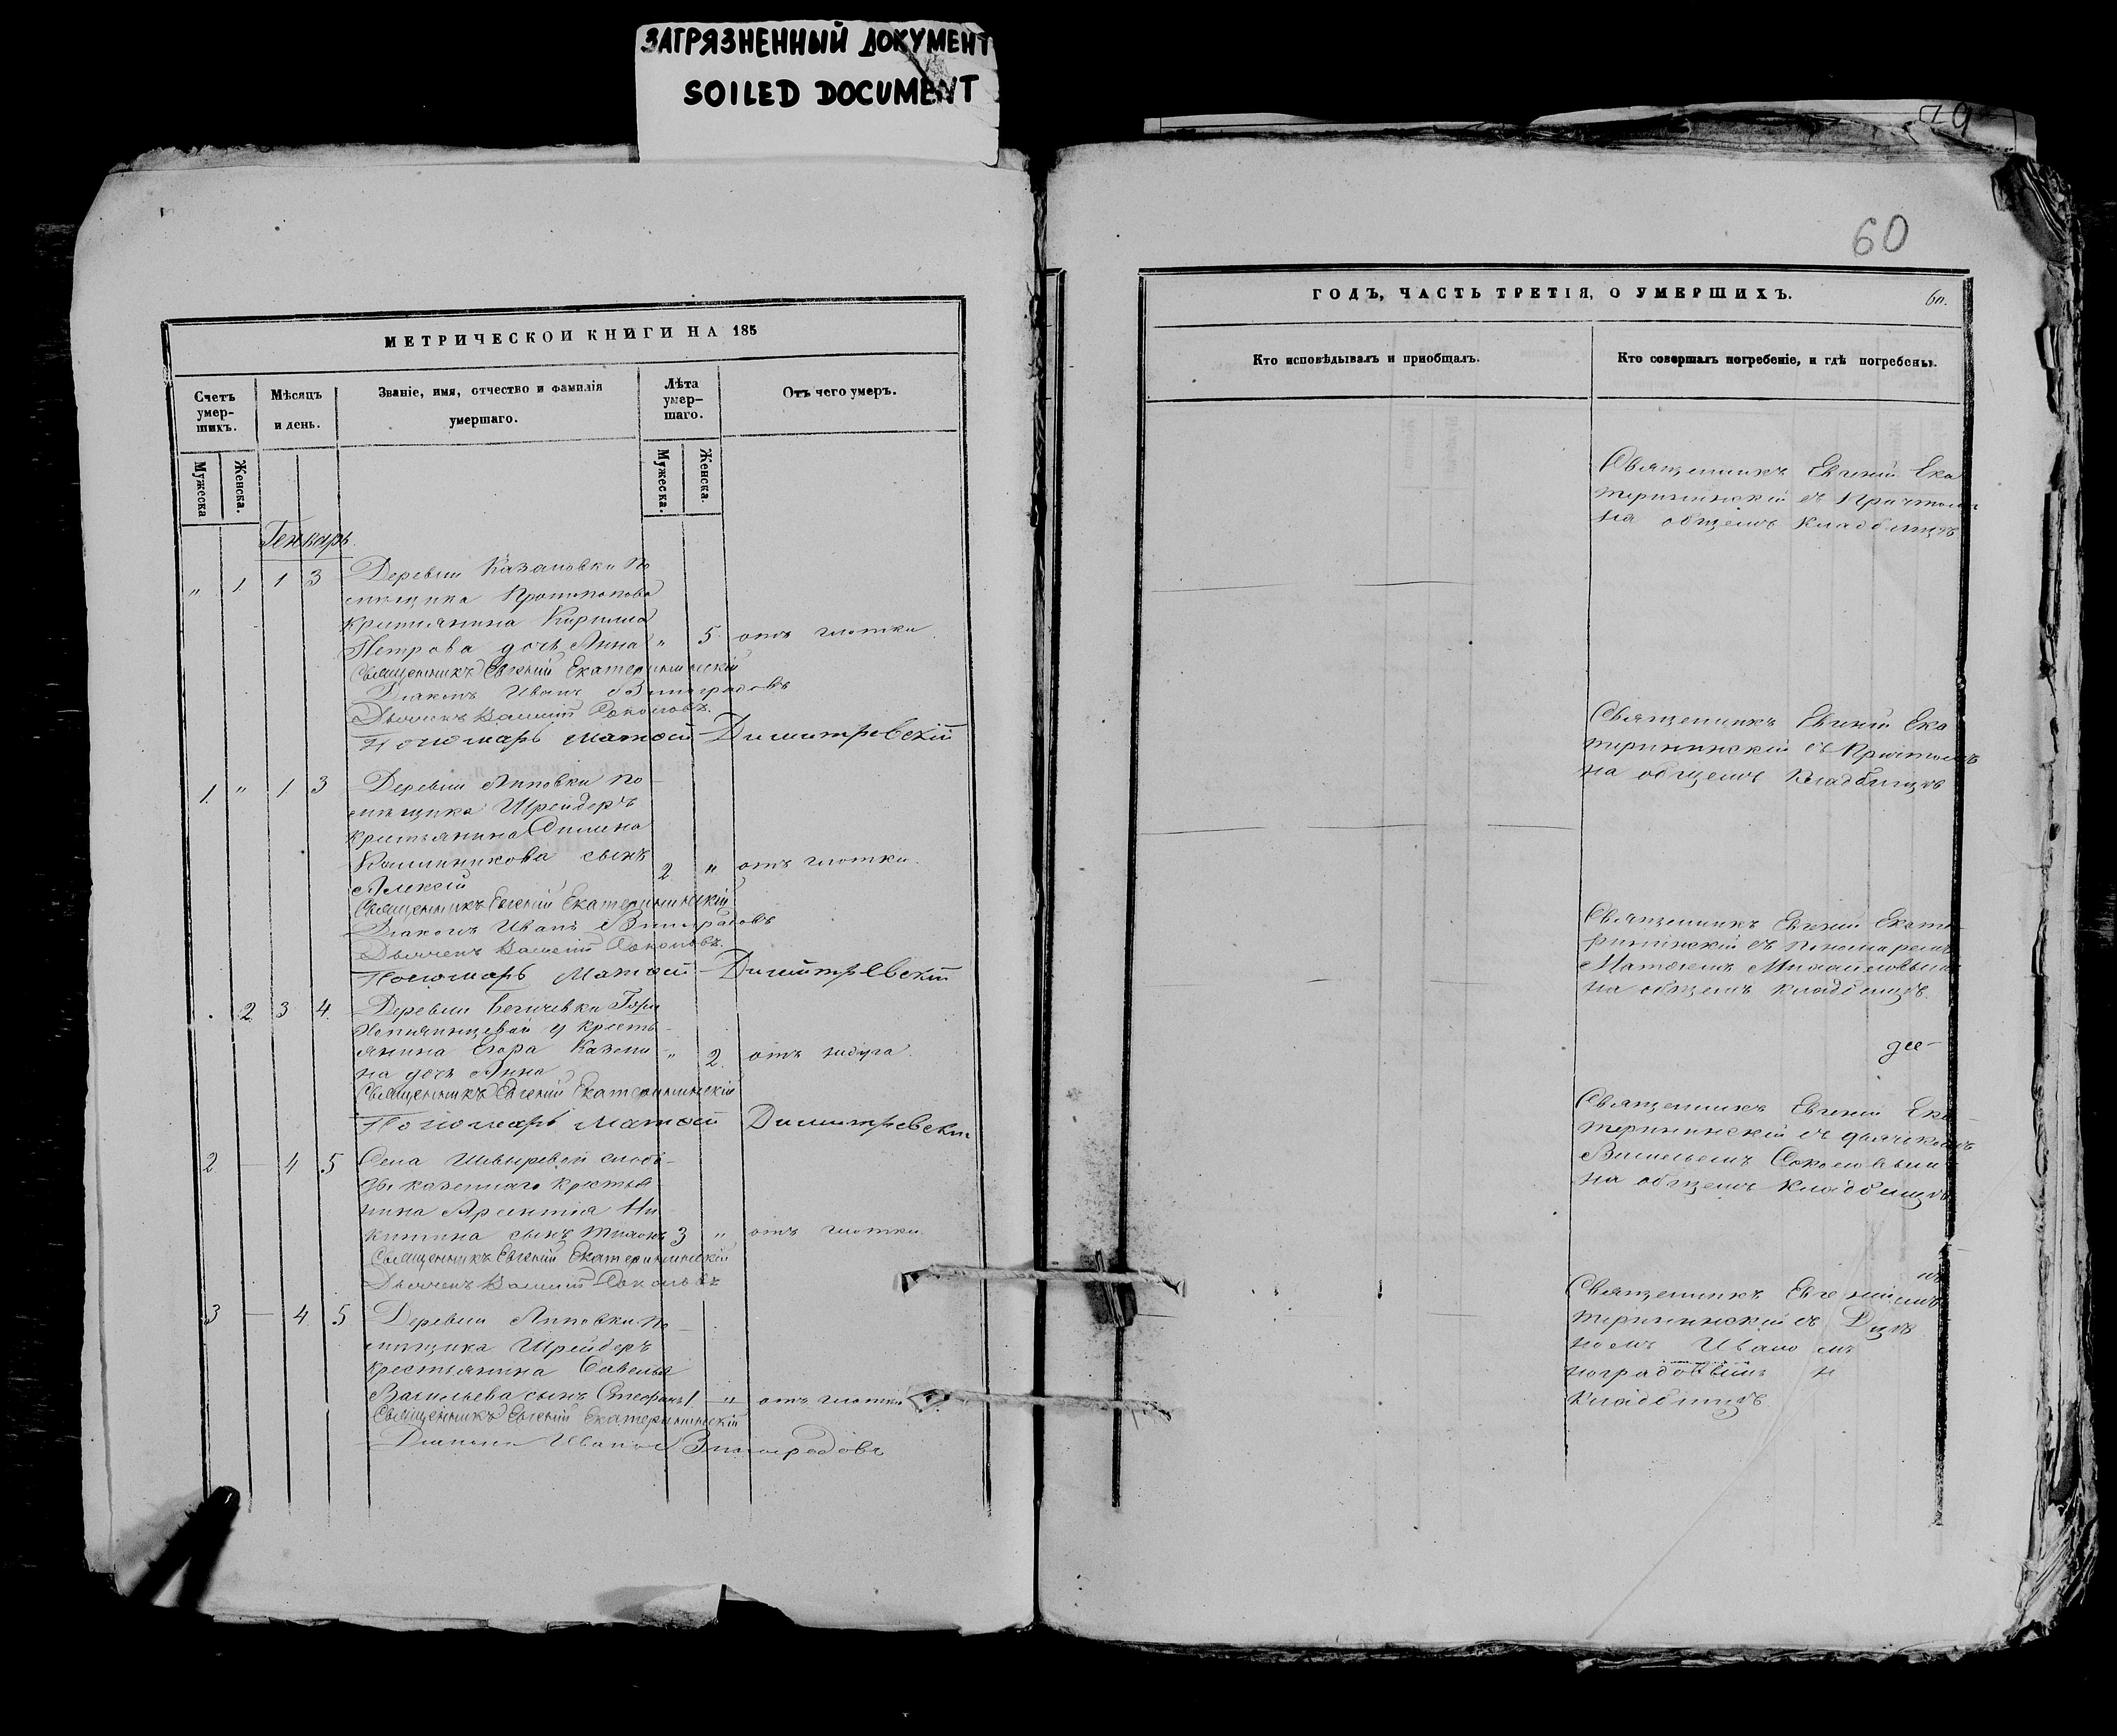 ЗАГРЯЗНЕННЫЙ ДОКУМЕНТ
SOILED DOCUMENT
МЕТРИЧЕСКОЙ КНИГИ НА 185
Счетъ умер-шихъ.
Мѣсяцъ и день.
Званіе, имя, отчество и фамилія умершаго.
Лѣта умер-шаго.
Отъ чего умеръ.
Мужеска
Женска.
Мужеска.
Женска.
Генварь
" 1 1 3 Деревни Казановки по
мѣщика Протопопова
крестьянина Кирилла
Петрова дочь Анна " 5 отъ глотки.
Священникъ Евгеній Екатерининскій
Діаконъ Иванъ Виноградовъ
Дьячекъ Василій Соколовъ.
Пономарь Матѳей Димитревскій
1. " 1 3 Деревни Липовки по-
мѣщика Шрейдеръ
крестьянина
Калинникова сынъ 2 " отъ глотки.
Алексѣй
Священникъ Евгеній Екатерининскій
Діаконъ Иванъ Виноградовъ
Дьячекъ Василій Соколовъ.
Пономарь Матѳей Димитревскій
. 2 3 4. Деревни Бегичевки
у кресть-
янина Егора " 2. отъ
на дочь Анна
Священникъ Евгеній Екатерининскій
Пономарь Матѳей Димитревскій
2 — 4 5 Села слобо-
ды казеннаго крестья
нина Арсентія Ни-
китина сынъ Тихонъ 3 " отъ глотки
Священникъ Евгеній Екатерининскій
Дьячекъ Василій Соколовъ
3 — 4. 5 Деревни Липовки по-
мѣщика Шрейдеръ
крестьянина Савелья
Васильева сынъ Стефанъ 1 " отъ глотки
Священникъ Евгеній Екатерининскій
Діаконъ Иванъ Виноградовъ
60
ГОДЪ, ЧАСТЬ ТРЕТІЯ, О УМЕРШИХЪ.
60.
Кто исповѣдывалъ и пріобщалъ.
Кто совершалъ погребеніе, и гдѣ погребены.
Священникъ Евгеній Ека
терининскій съ Причтомъ
на общемъ кладбищѣ
Священникъ Евгеній Ека
терининскій съ Причтомъ
на общемъ кладбищѣ
Священникъ Евгеній Екате-
рининскій съ пономаремъ
Матѳеемъ Михайловымъ
на общемъ кладбищѣ.
Священникъ Евгеній Ека-
терининскій съ дьячкомъ
Васильемъ Соколовымъ
на общемъ кладбищѣ
Священникъ Евгеній
терининскій съ
номъ Ивано
ноградовымъ н
кладбищѣ